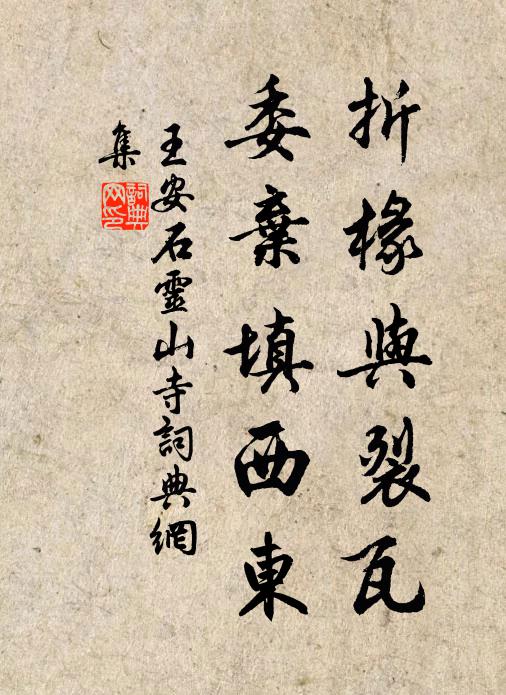 折椽與裂瓦
委棄填西東
王安石靈山寺詞典網
集
詞典網印